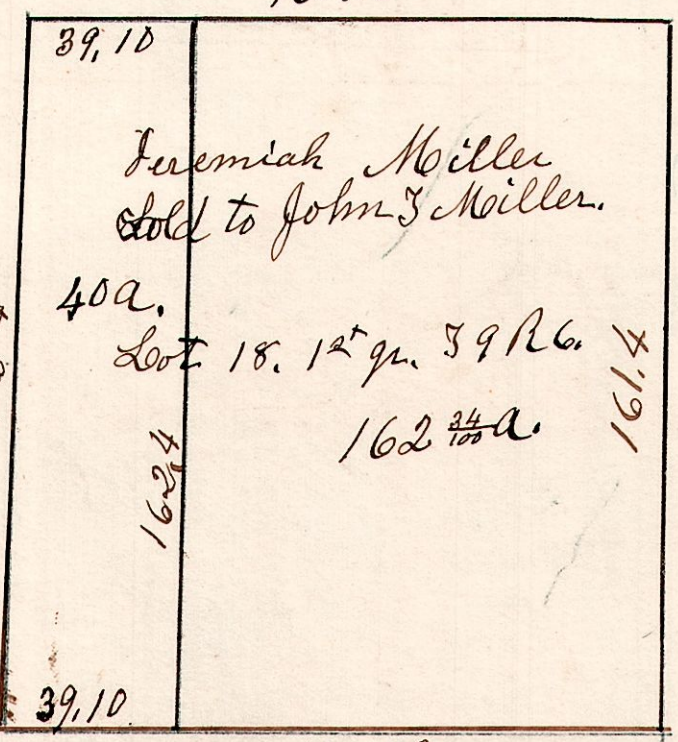 39,10
Jeremiah Miller
Sold to John T Miller.
40 a.
Lot 18. 1st qr. T 9 R 6.
161.4
162 34/100 a.
162.4
39,10